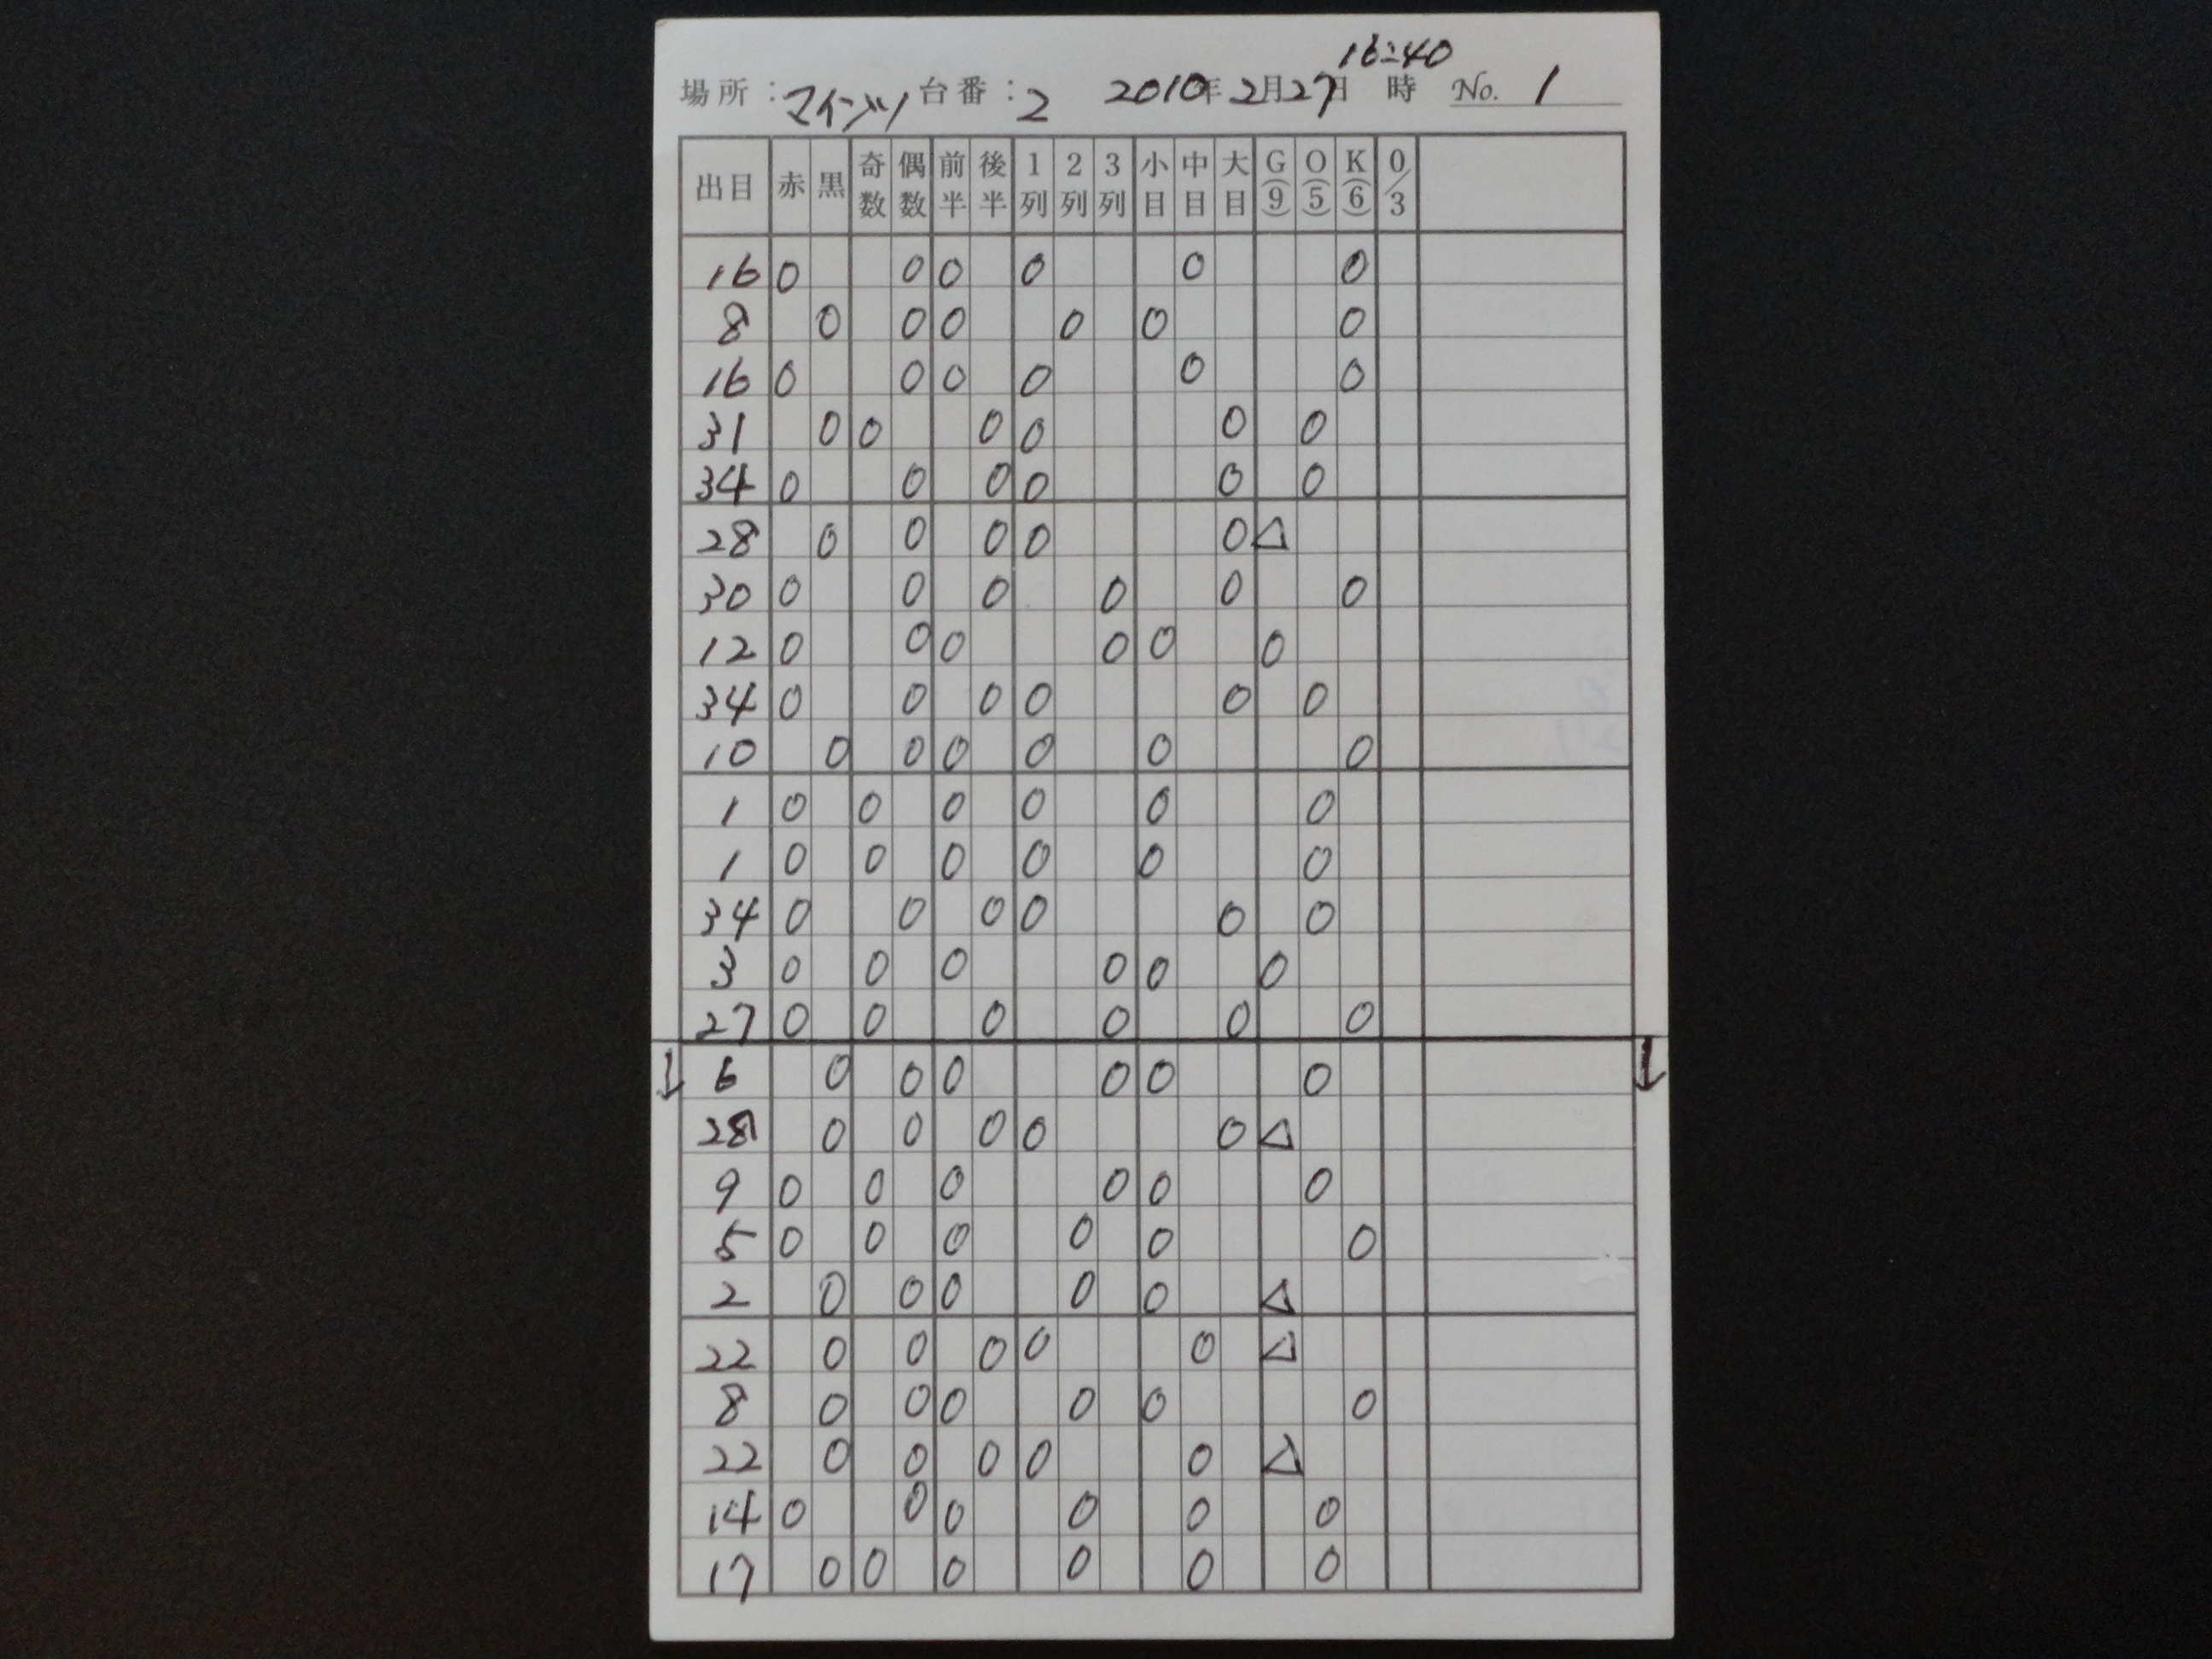 16:40
場所：マインツ 台番：2 2010年2月27日 時 No. 1
出目 赤 黒 奇数 偶数 前半 後半 1列 2列 3列 小目 中目 大目 G(9) O(5) K(6) 0/3
16 0 0 0 0 0 0
8 0 0 0 0 0 0
16 0 0 0 0 0 0
31 0 0 0 0 0 0
34 0 0 0 0 0 0
28 0 0 0 0 0 △
30 0 0 0 0 0 0
12 0 0 0 0 0 0
34 0 0 0 0 0 0
10 0 0 0 0 0 0
1 0 0 0 0 0 0
1 0 0 0 0 0 0
34 0 0 0 0 0 0
3 0 0 0 0 0 0
27 0 0 0 0 0 0
↓ 6 0 0 0 0 0 0 ↓
28 0 0 0 0 0 △
9 0 0 0 0 0 0
5 0 0 0 0 0 0
2 0 0 0 0 0 △
22 0 0 0 0 0 △
8 0 0 0 0 0 0
22 0 0 0 0 0 △
14 0 0 0 0 0 0
17 0 0 0 0 0 0